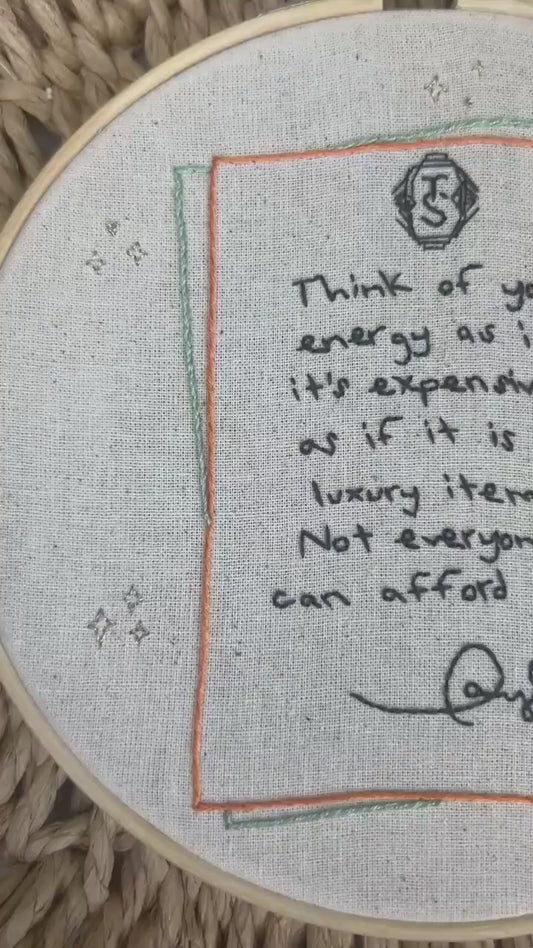 TS
Think of yo
energy as i
it's expensiv
as if it is
luxury item
Not everyon
can afford